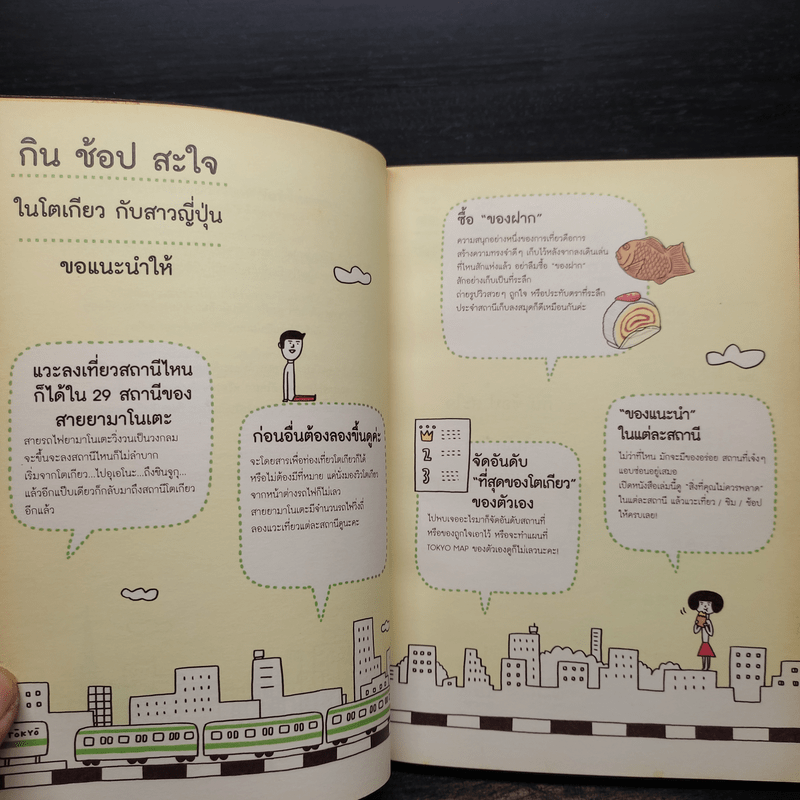 กิน ช้อป สะใจ
ในโตเกียว กับสาวญี่ปุ่น
ขอแนะนำให้
แวะลงเที่ยวสถานีไหน
ก็ได้ใน 29 สถานีของ
สายยามาโนเตะ
สายรถไฟยามาโนเตะวิ่งวนเป็นวงกลม
จะขึ้นจะลงสถานีไหนก็ไม่ลำบาก
เริ่มจากโตเกียว...ไปอุเอโนะ...ถึงชินจูกุ...
แล้วอีกแป๊บเดียวก็กลับมาถึงสถานีโตเกียว
อีกแล้ว
ก่อนอื่นต้องลองขึ้นดูค่ะ
จะโดยสารเพื่อท่องเที่ยวโตเกียวก็ได้
หรือไม่ต้องมีที่หมาย แค่นั่งมองวิวโตเกียว
จากหน้าต่างรถไฟก็ไม่เลว
สายยามาโนเตะมีจำนวนรถไฟวิ่งถี่
ลองแวะเที่ยวแต่ละสถานีดูนะคะ
TOKYO
ซื้อ “ของฝาก”
ความสนุกอย่างหนึ่งของการเที่ยวคือการ
สร้างความทรงจำดีๆ เก็บไว้หลังจากลงเดินเล่น
ที่ไหนสักแห่งแล้ว อย่าลืมซื้อ “ของฝาก”
สักอย่างเก็บเป็นที่ระลึก
ถ่ายรูปวิวสวยๆ ถูกใจ หรือประทับตราที่ระลึก
ประจำสถานีเก็บลงสมุดก็ดีเหมือนกันค่ะ
2
3
จัดอันดับ
“ที่สุดของโตเกียว”
ของตัวเอง
ไปพบเจออะไรมาก็จัดอันดับสถานที่
หรือของถูกใจเอาไว้ หรือจะทำแผนที่
TOKYO MAP ของตัวเองดูก็ไม่เลวนะคะ!
“ของแนะนำ”
ในแต่ละสถานี
ไม่ว่าที่ไหน มักจะมีของอร่อย สถานที่เจ๋งๆ
แอบซ่อนอยู่เสมอ
เปิดหนังสือเล่มนี้ดู “สิ่งที่คุณไม่ควรพลาด”
ในแต่ละสถานี แล้วแวะเที่ยว / ชิม / ช้อป
ให้ครบเลย!